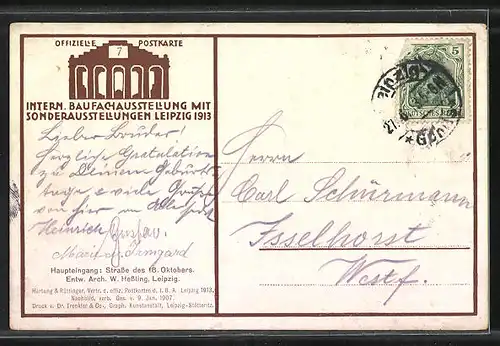 OFFIZIELLE POSTKARTE
7
INTERN. BAUFACHAUSSTELLUNG MIT
SONDERAUSSTELLUNGEN LEIPZIG 1913
Lieber Bruder!
Herzliche Gratulation
zu Deinem Geburts-
tage u. viele Grüße
von hier an Alle
Heinrich Gustav.
Marie u. Irmgard
Haupteingang: Straße des 18. Oktobers.
Entw. Arch. W. Heßling, Leipzig.
Hartung & Rötzinger, Vertr. d. offiz. Postkarten d. I. B. A. Leipzig 1913.
Nachbild. verb. Ges. v. 9. Jan. 1907.
Druck v. Dr. Trenkler & Co., Graph. Kunstanstalt, Leipzig-Stötteritz.
Leipzig
27
5
Herrn
Carl Schürmann
Isselhorst
Westf.